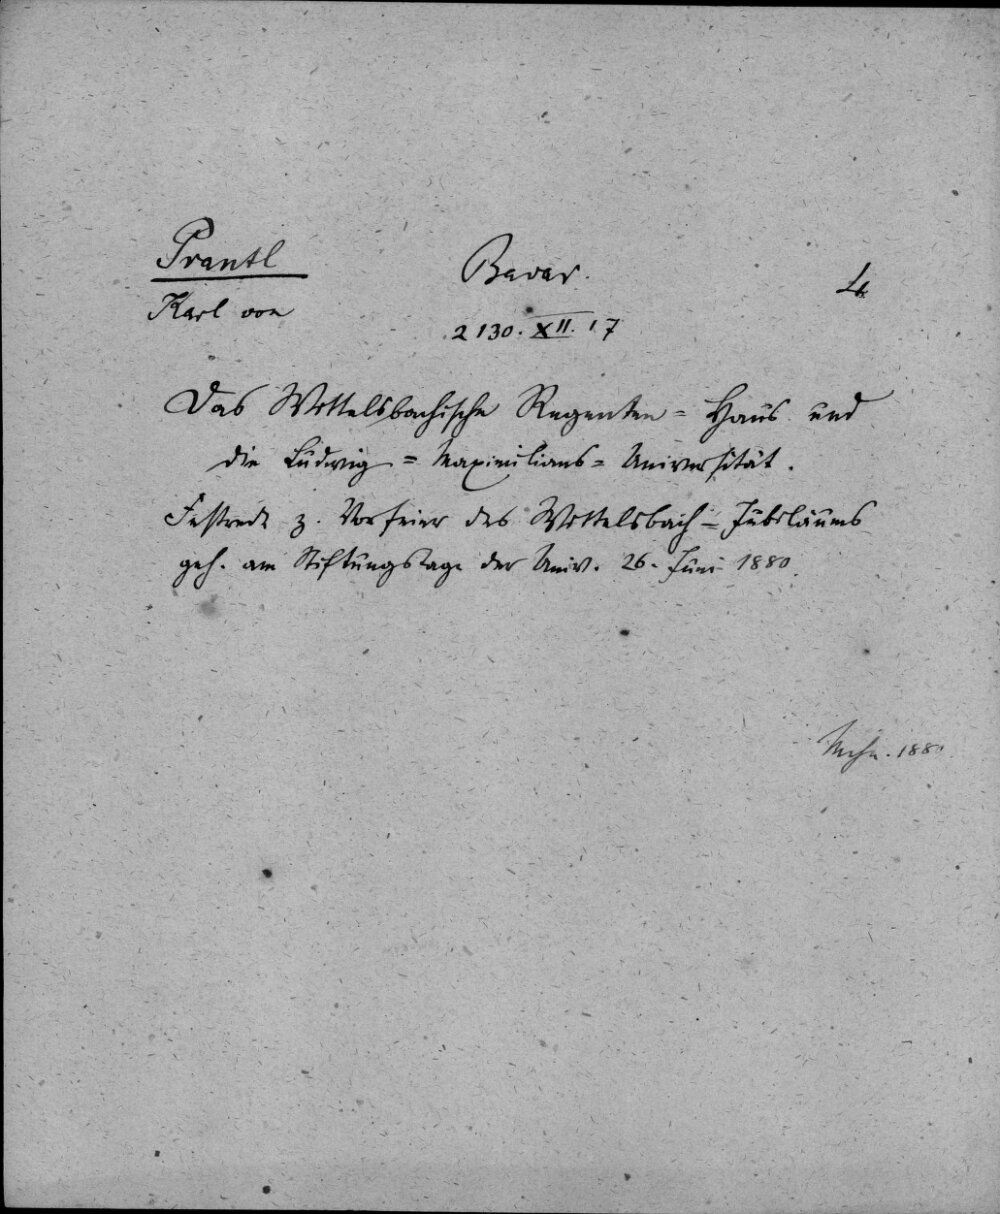 Prantl
Karl von
Bavar.
4
2130. XII. 17
Das Wittelsbachische Regenten = Haus und
die Ludwig = Maximilians = Universität.
Festrede z. Vorfeier des Wittelsbach = Jubiläums
geh. am Stiftungstage der Univ. 26. Juni 1880.
Mchn. 1880